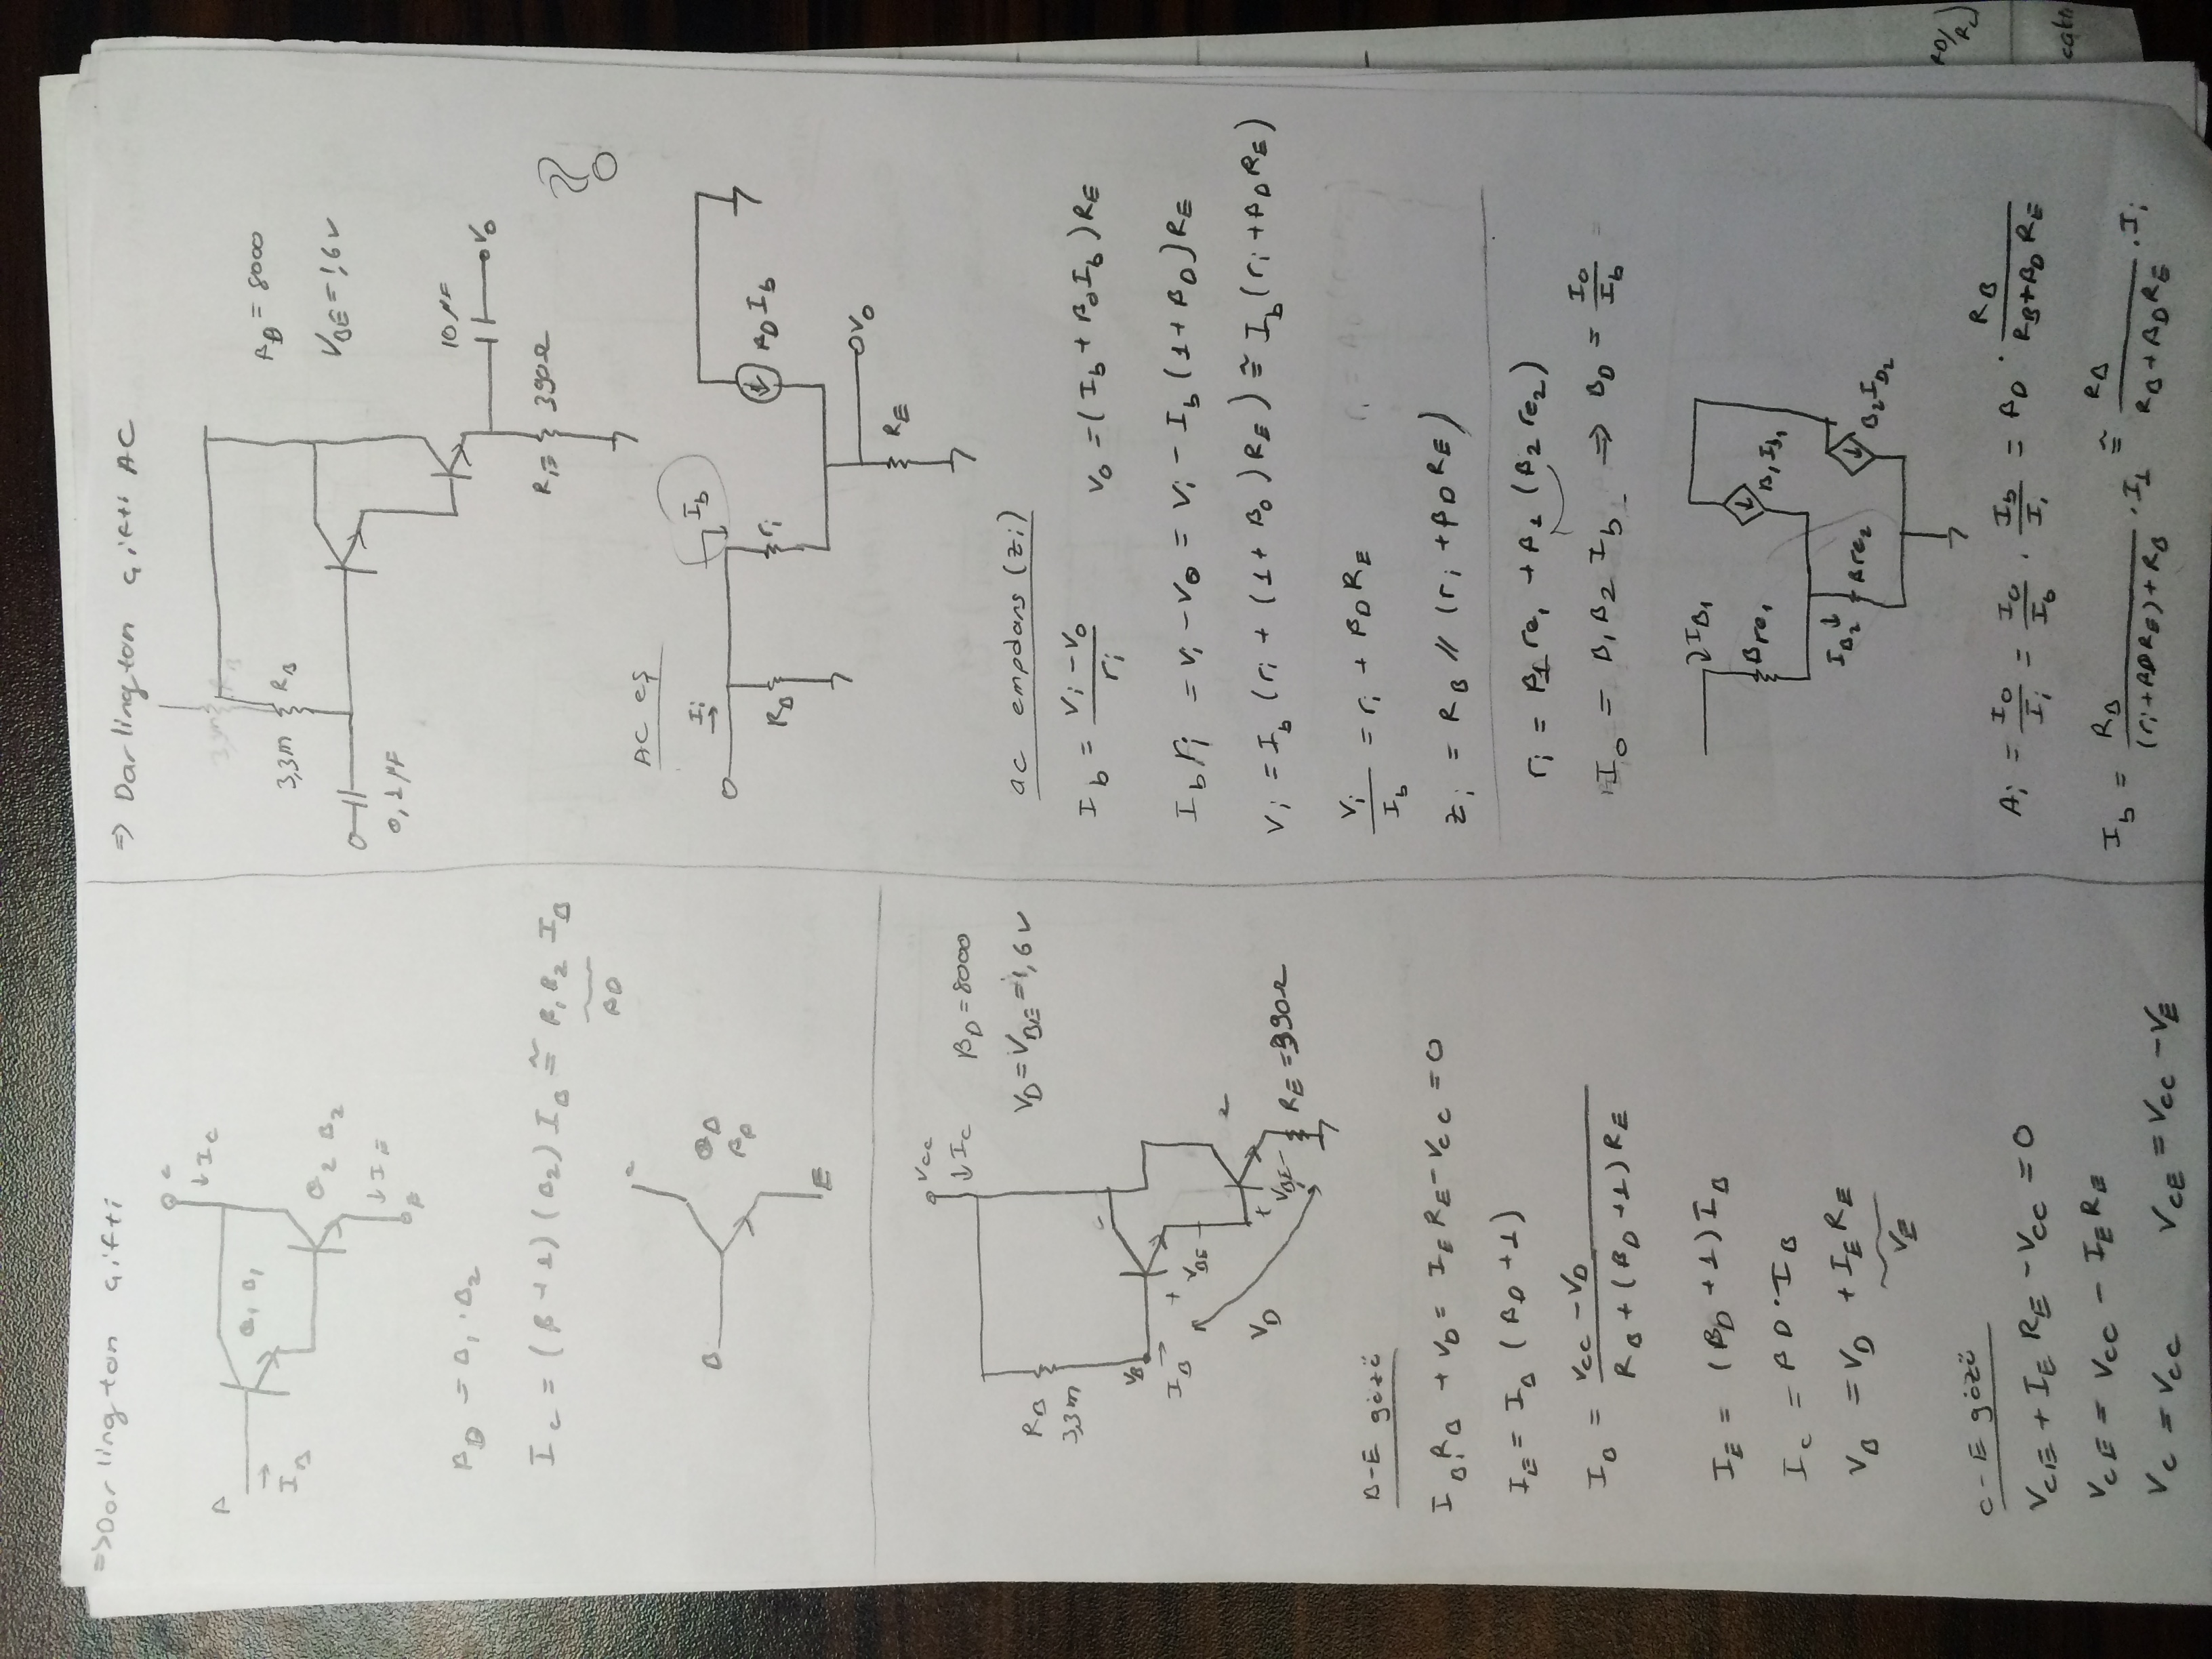 =>Darlington çifti
C
↓ I_C
B
→
I_B
Q_1 β_1
Q_2 β_2
↓ I_E
E
β_D = β_1 . β_2
I_C = (β + 1) (β_2) I_B ≅ β_1 β_2 I_B
β_D
C
B
Q_D
β_D
E
V_CC
↓ I_C
β_D = 8000
V_D = V_BE = 1,6 V
R_B
3,3m
V_B
I_B →
+
V_BE -
V_D
+
V_BE -
2
R_E = 390Ω
B-E gözü
I_B . R_B + V_D = I_E R_E - V_CC = 0
I_E = I_B (β_D + 1)
I_B = (V_CC - V_D) / (R_B + (β_D + 1) R_E)
I_E = (β_D + 1) I_B
I_C = β_D . I_B
V_B = V_D + I_E R_E
V_E
C-E gözü
V_CE + I_E R_E - V_CC = 0
V_CE = V_CC - I_E R_E
V_C = V_CC V_CE = V_CC - V_E
=> Darlington çifti AC
3,3m R_B
3,3m R_B
β_D = 8000
V_BE = 1,6 V
0,1 μF
10 μF
V_o
R_E 390Ω
?
AC eş
I_i →
I_b
R_B
r_i
β_D I_b
V_o
R_E
ac empdans (Z_i)
I_b = (V_i - V_o) / r_i V_o = (I_b + β_D I_b) R_E
I_b r_i = V_i - V_o = V_i - I_b (1 + β_D) R_E
V_i = I_b (r_i + (1 + β_D) R_E) ≅ I_b (r_i + β_D R_E)
V_i / I_b = r_i + β_D R_E
Z_i = R_B // (r_i + β_D R_E)
r_i = β_1 re_1 + β_1 (β_2 re_2)
I_o = β_1 β_2 I_b => β_D = I_o / I_b
I_B1
β re_1
β_1 I_b1
I_B2 ↓
β re_2
β_2 I_b2
A_i = I_o / I_i = I_o / I_b . I_b / I_i = β_D . R_B / (R_B + β_D R_E)
I_b = R_B / ((r_i + β_D R_E) + R_B) . I_1 ≅ R_B / (R_B + β_D R_E) . I_i